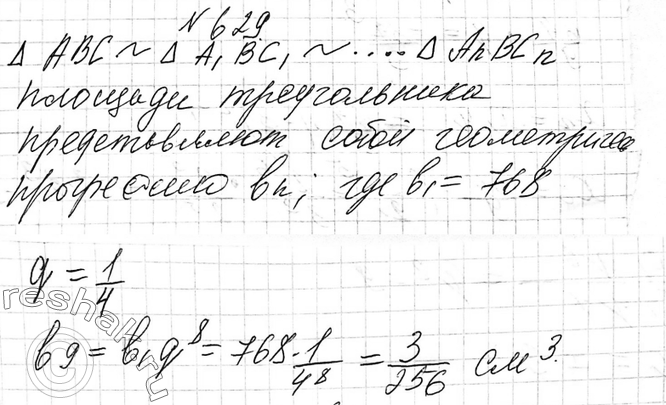 № 629
Δ ABC ~ Δ A₁BC₁ ~ .... Δ AnBCn
площади треугольника
представляют собой геометричес
прогрессию bn; где b₁ = 768
q = 1/4
b9 = b₁q⁸ = 768 · 1/4⁸ = 3/256 см³.
reshak.ru